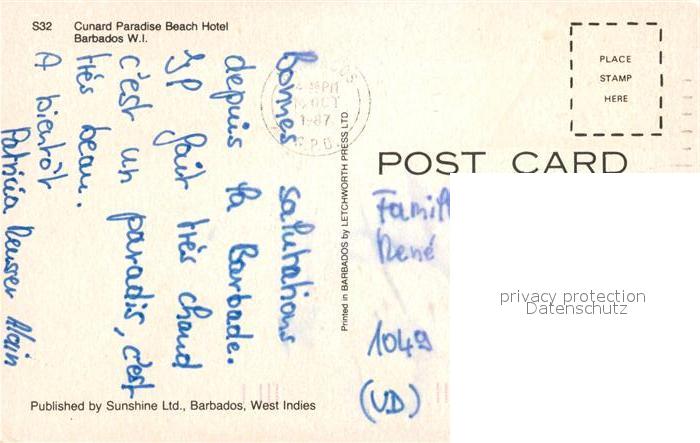 S32 Cunard Paradise Beach Hotel
Barbados W.I.
PLACE
STAMP
HERE
PM
OCT
1987
G.P.O.
POST CARD
Bonnes salutations
depuis la Barbade.
Il fait très chaud
c'est un paradis, c'est
très beau.
A bientôt
Patricia Alain
Printed in BARBADOS by LETCHWORTH PRESS LTD
Famill
René
1049
(VD)
privacy protection
Datenschutz
Published by Sunshine Ltd., Barbados, West Indies